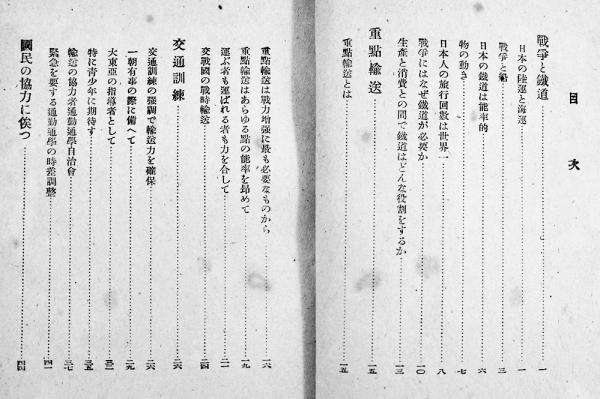 目次
戰爭と鐵道……一
日本の陸運と海運……一
戰爭と船……三
日本の鐵道は能率的……六
物の動き……七
日本人の旅行回數は世界一……八
戰爭にはなぜ鐵道が必要か……一〇
生產と消費との間で鐵道はどんな役割をするか……一三
重點輸送……一五
重點輸送とは……一五
重點輸送は戰力增强に最も必要なものから……一六
重點輸送はあらゆる點の能率を昂めて……一九
運ぶ者も運ばれる者も力を合して……二二
交戰國の戰時輸送……二四
交通訓練……二六
交通訓練の强調で輸送力を確保……二六
一朝有事の際に備へて……二九
大東亞の指導者として……三二
特に靑少年に期待す……三五
輸送の協力者通勤通學自治會……三七
緊急を要する通勤通學の時差調整……四一
國民の協力に俟つ……四四